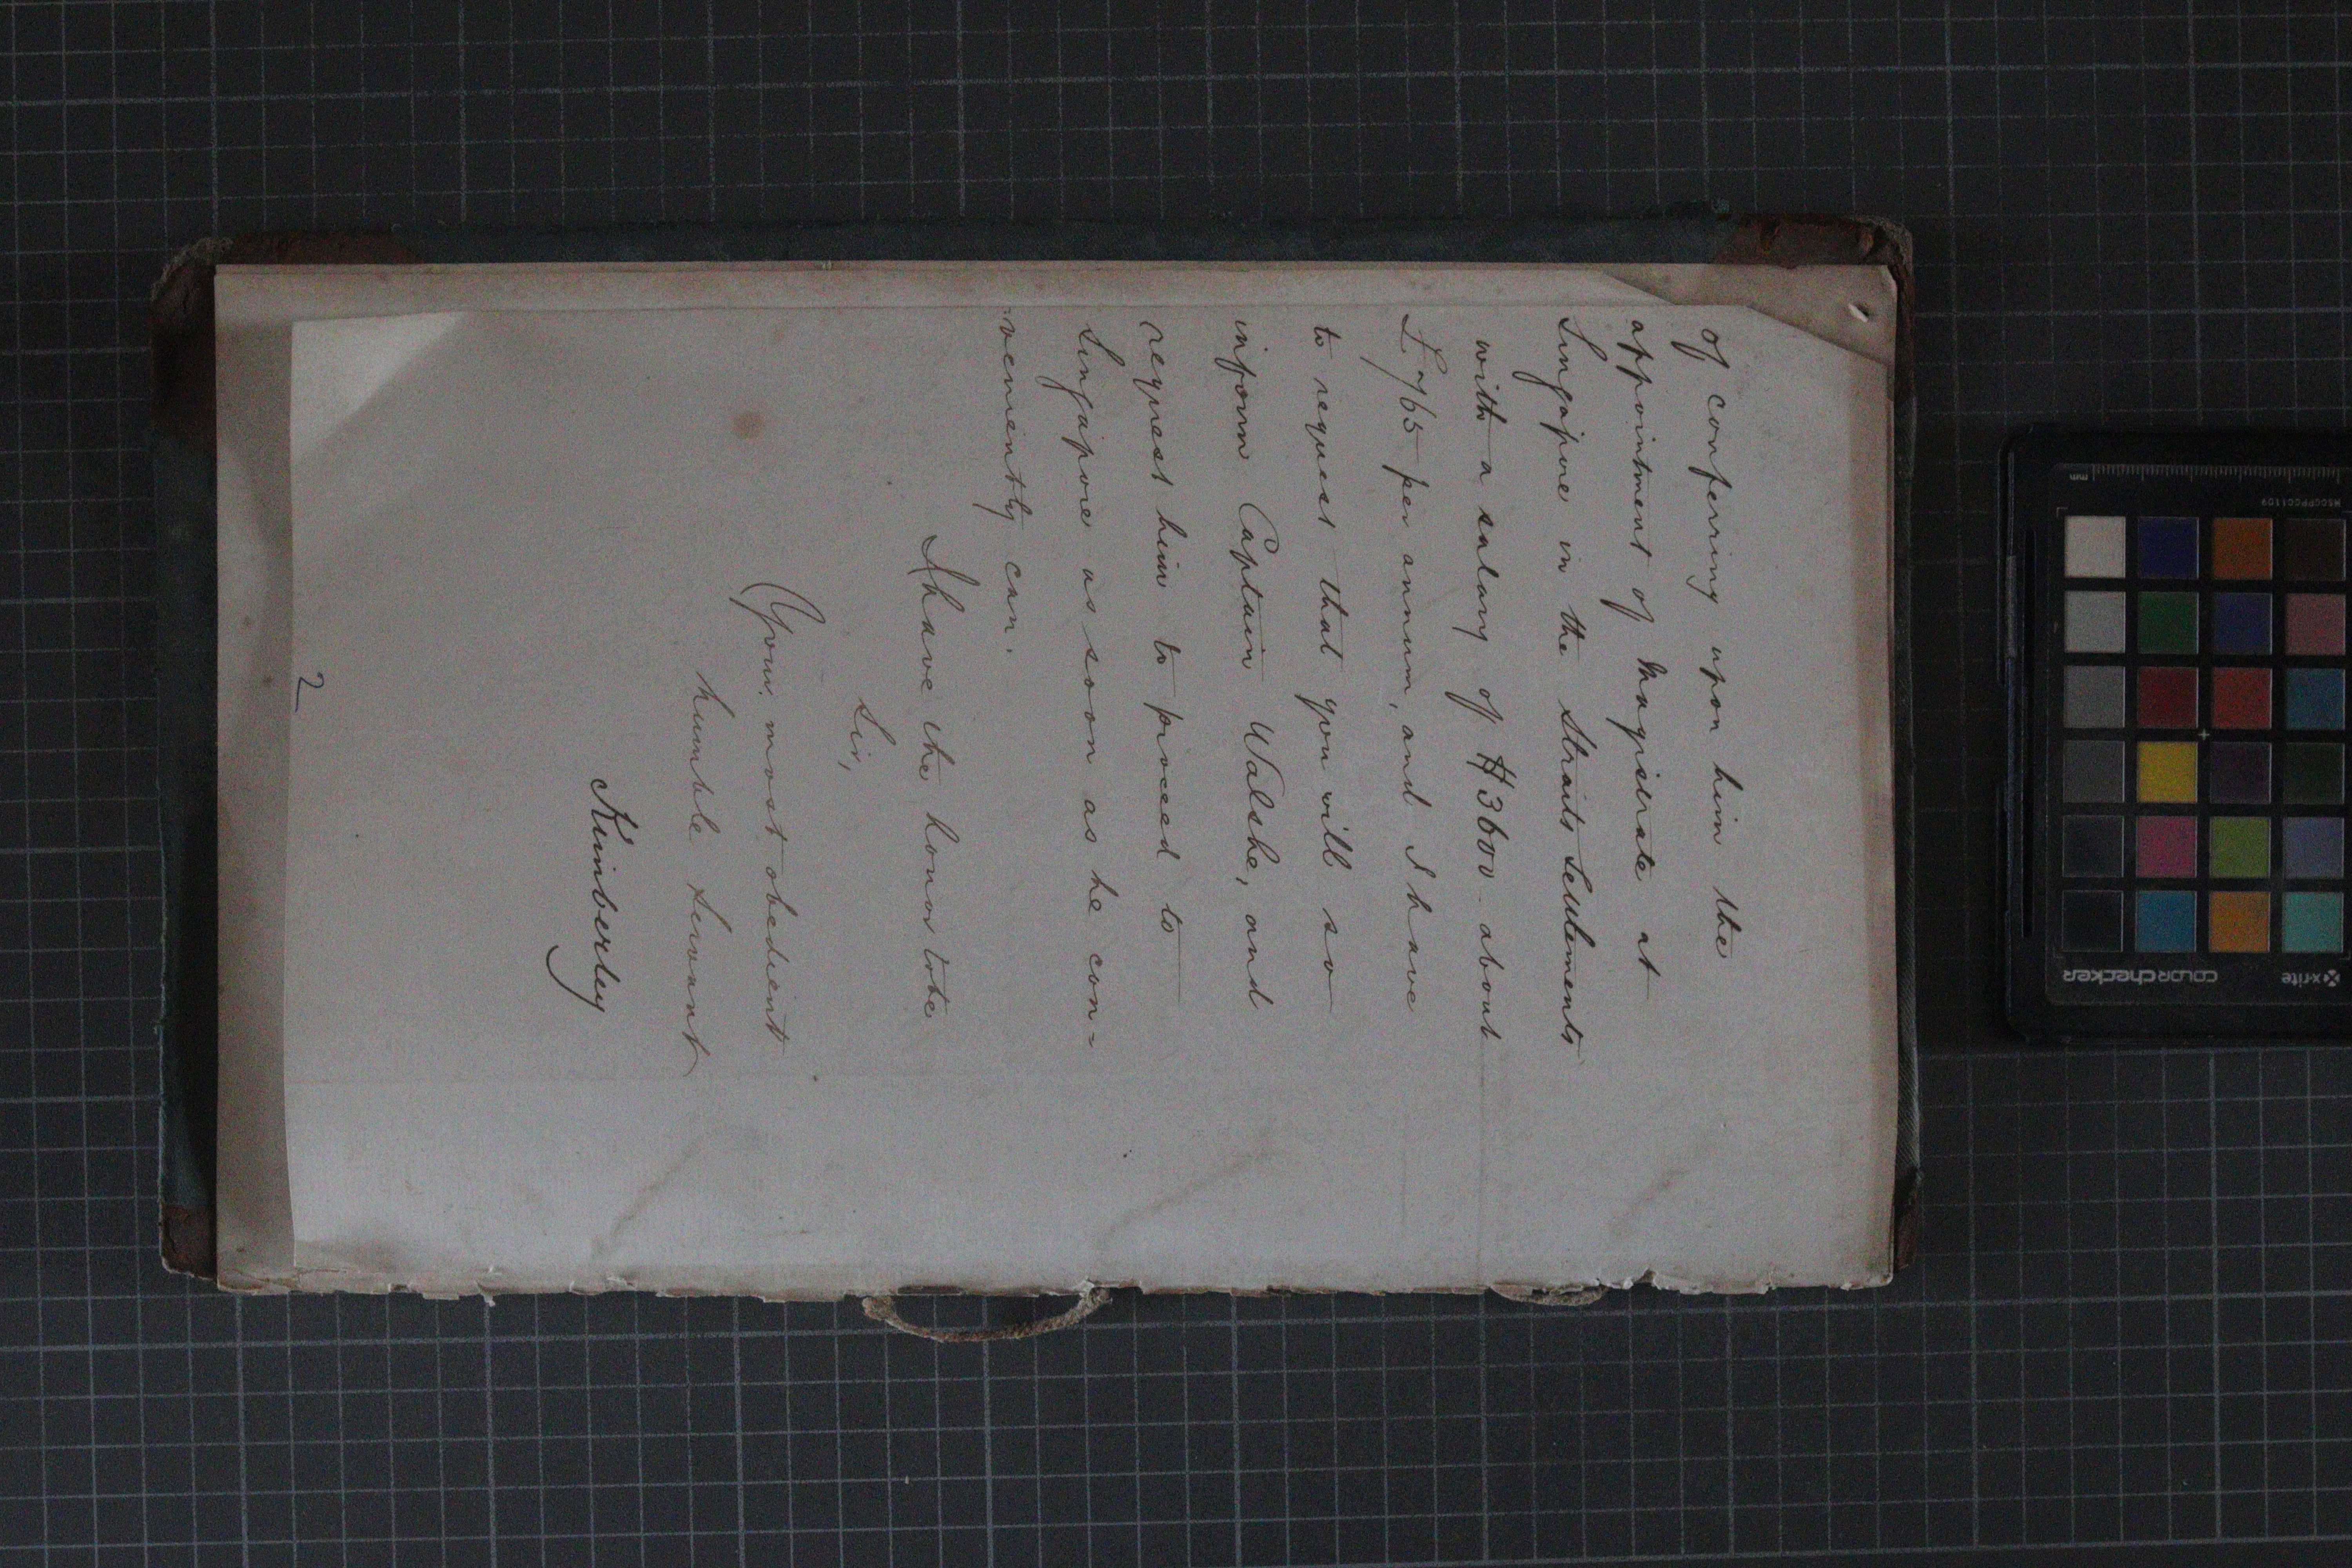 of conferring upon him the
appointment of Magistrate at
Singapore in the Straits Settlements
with a salary of $3600 - about
£765 per annum, and I have
to request that you will so
inform Captain Walshe, and
request him to proceed to
Singapore as soon as he con=
=veniently can.
I have the honor to be
Sir,
Your most obedient
humble servant
Kimberley
2
mm
MSCCPPCC1109
x-rite
colorchecker